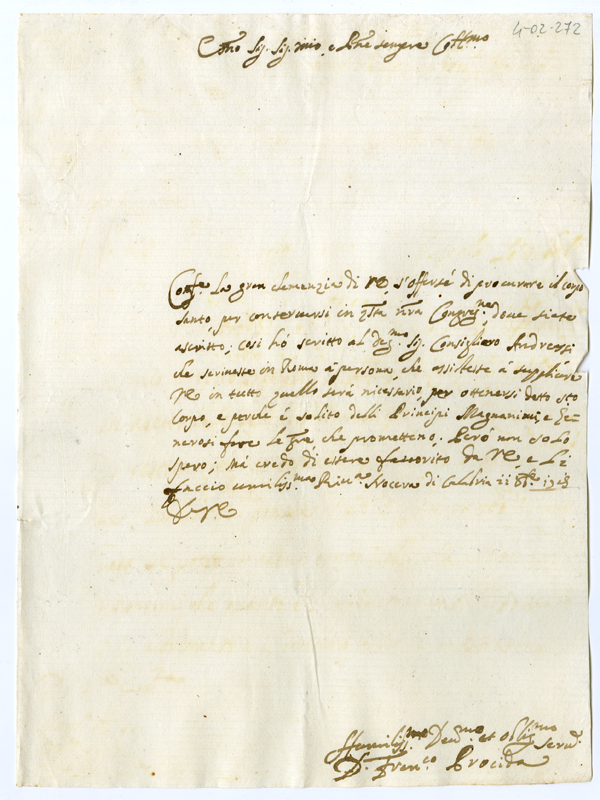 4-02-272
Sig. Sig. mio, e Pne sempre
La gran clemenzia di VE, s'offerse di procurare il corpo
Santo, per conservarsi in qsta nra Congregne, dove siete
ascritto; così hò scritto al Sig. Consigliero Andreassi
che scrivesse in Roma à persona, che assistesse à supplicare
VE in tutto quello serà nicessario, per ottenersi detto sto
Corpo, e perche è solito delli Principi Magnanimi, e Ge=
nerosi fare le gre, che promettono. Però non solo
spero; mà credo di essere favorito da VE, e Li
faccio umiliss.ma Riv.a Nocera di Calabria 11 8bre
D. V E
Humiliss.mo Dev.mo et oblig.mo serv.
D. Fran.co Procida